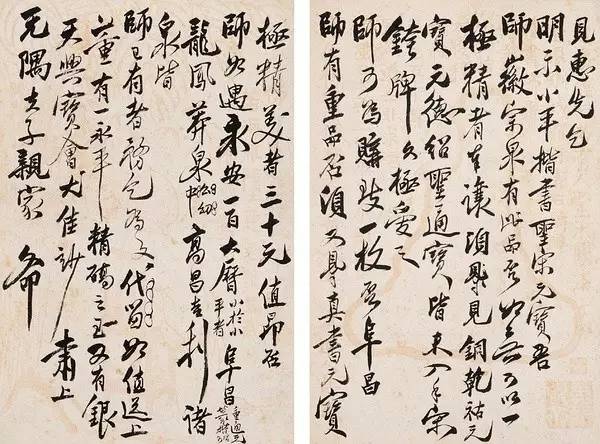 見惠先乞
明示小平楷書聖宋元寶吾
師徽宗泉有此品否如無可以一
極精者奉讓須見銅乾祐元
寶元德紹聖通寶皆未入手宋
銙牌久極愛之
師可為購致一枚否阜昌
師有重品否須又見真書元寶
極精美者三十元值昂否
師如遇永安一百大曆小於小平者阜昌
龍鳳莽泉中幼高昌吉利諸
泉皆
師已有者乞為文代留如值送上
有一永平精碻之至又有銀
天興寶會尤佳妙肅上
无隅夫子親家